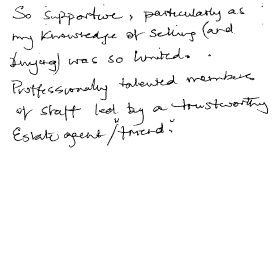 So supportive, particularly as
my knowledge of selling (and
buying) was so limited.
Proffessionally talented members
of staff led by a trustworthy
Estate agent / "friend".